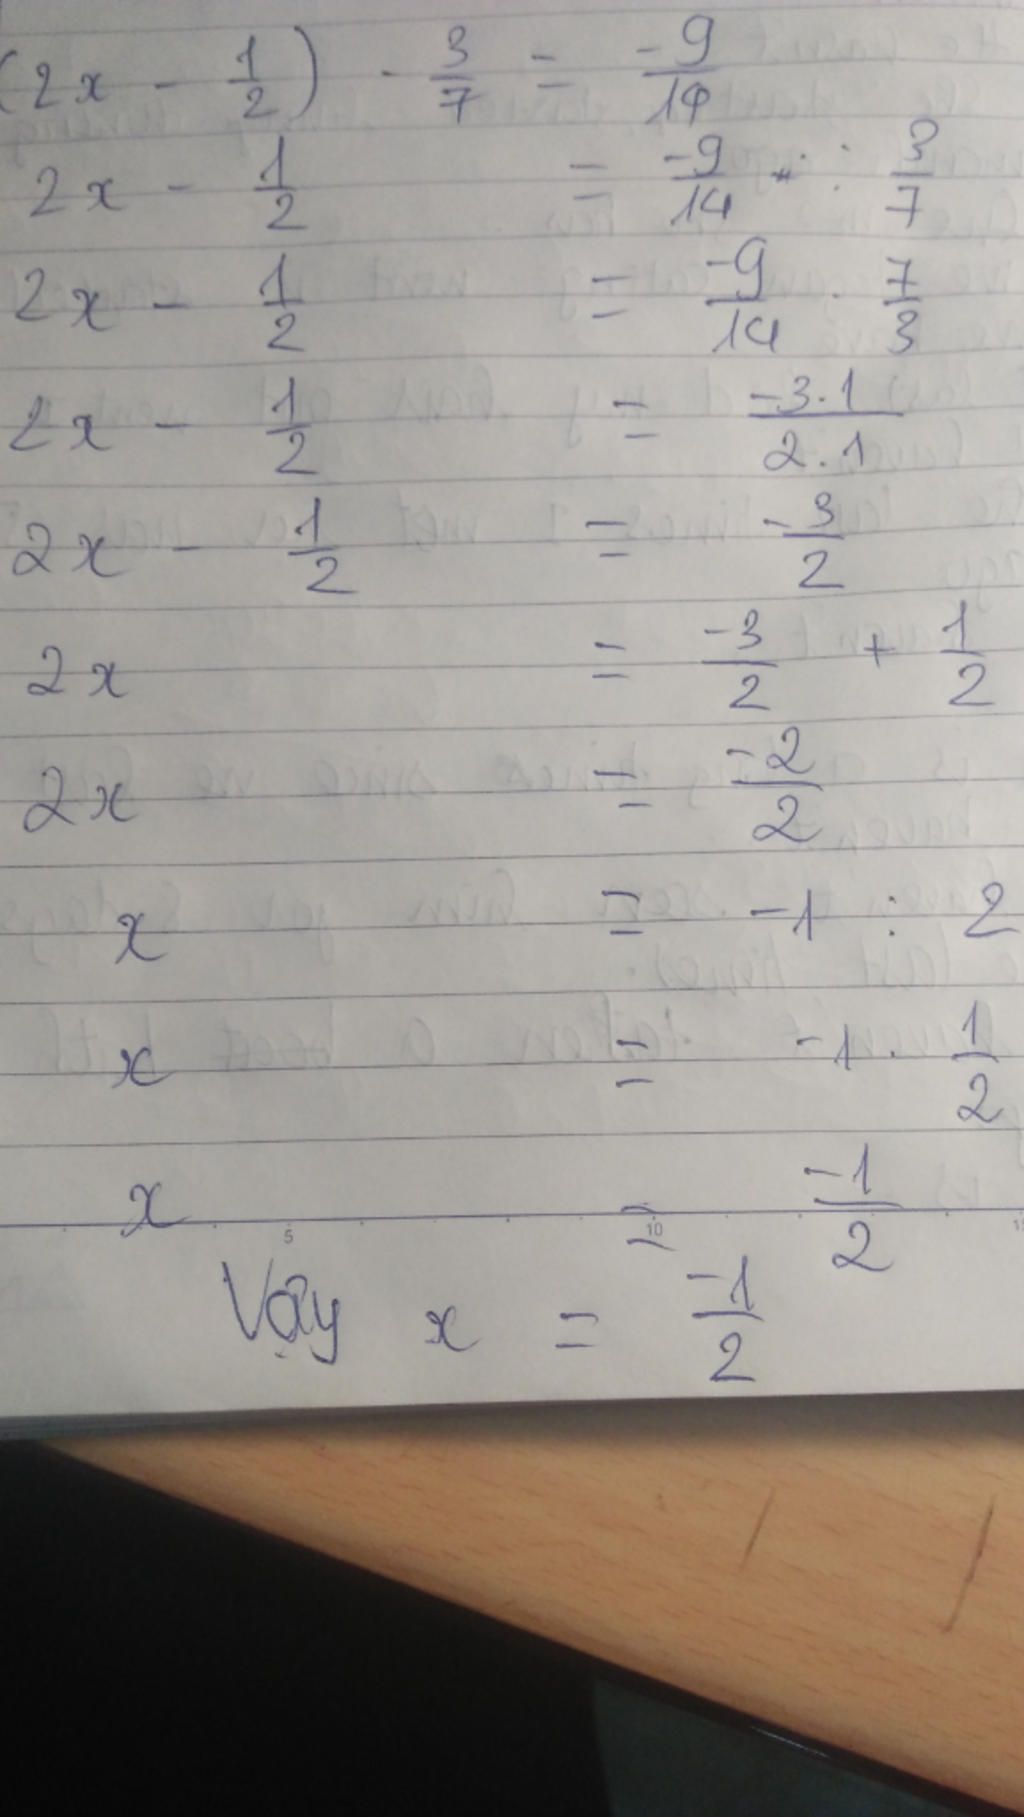 (2x - 1/2) - 3/7 = -9/14
2x - 1/2 = -9/14 : 3/7
2x - 1/2 = -9/14 . 7/3
2x - 1/2 = -3.1/2.1
2x - 1/2 = -3/2
2x = -3/2 + 1/2
2x = -2/2
x = -1 : 2
x = -1 . 1/2
x = -1/2
5 10
Vậy x = -1/2